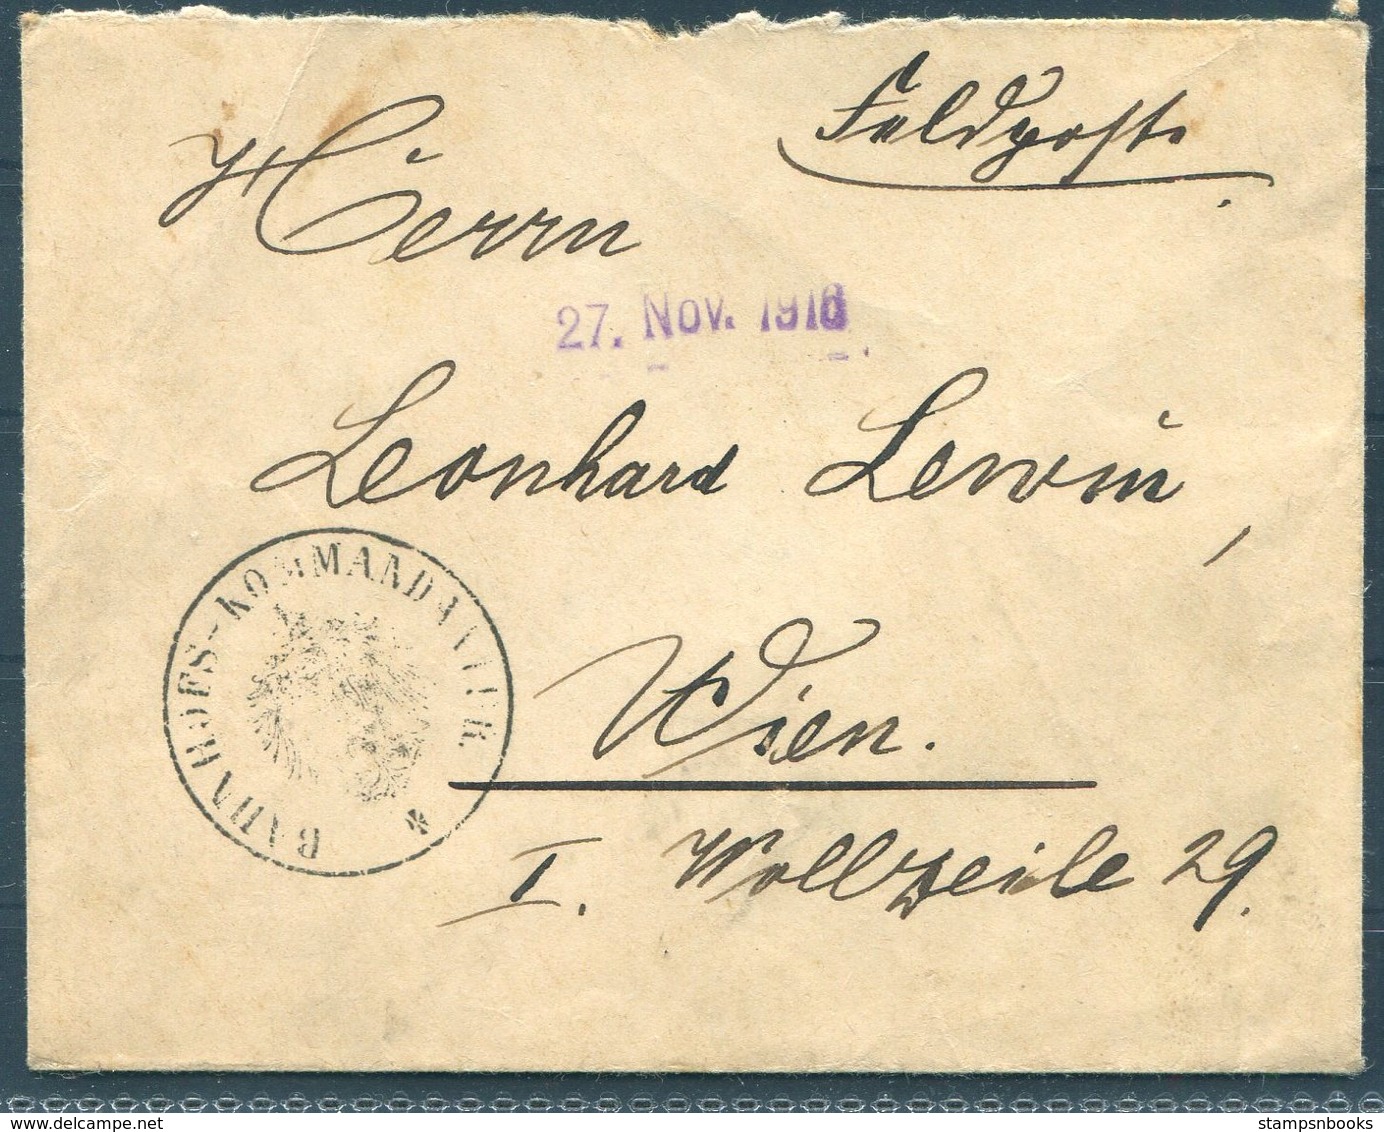 Feldpost.
Herrn
27. Nov. 1916
Leonhard Lewin,
BAHNHOFS-KOMMANDANTUR. *
Wien.
I. Wollzeile 29.
www.delcampe.net
stampsnbooks